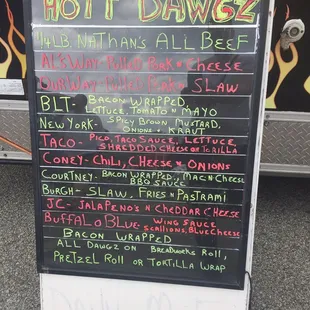 HOTT DAWGZ
1/4 LB. NATHAN'S ALL BEEF
PULLED PORK N CHEESE
PULLED PORK N SLAW
BLT- BACON WRAPPED,
LETTUCE, TOMATO N MAYO
NEW YORK- SPICY BROWN MUSTARD,
ONIONS N KRAUT
TACO- PICO, TACO SAUCE, LETTUCE,
SHREDDED CHEESE ON TORTILLA
CONEY- CHILI, CHEESE N ONIONS
COURTNEY- BACON WRAPPED, MAC N CHEESE
BBQ SAUCE
BURGH- SLAW, FRIES N PASTRAMI
JC- JALAPENO'S N CHEDDAR CHEESE
BUFFALO BLUE- WING SAUCE
SCALLIONS, BLUE CHEESE
BACON WRAPPED
ALL DAWGZ ON BREADWORKS ROLL,
PRETZEL ROLL OR TORTILLA WRAP